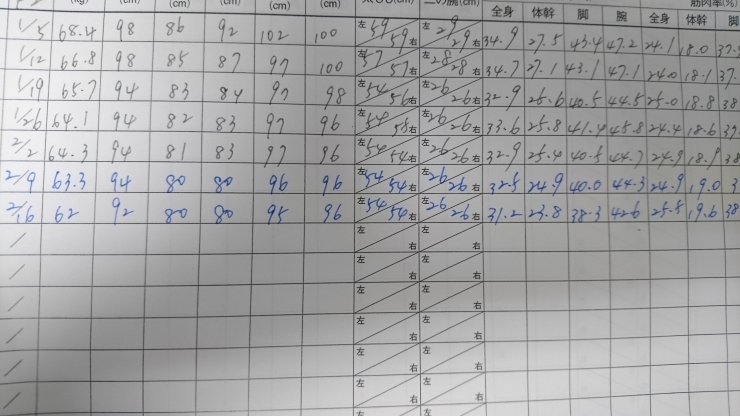 (kg) (cm) (cm) (cm) (cm) (cm) 二の腕(cm) 筋肉率(%)
全身 体幹 脚 腕 全身 体幹 脚
1/5 68.4 98 86 92 102 100 左59 59右 左29 29右 34.9 27.5 43.4 47.2 24.1 18.0 37.
1/12 66.8 98 85 87 97 100 左57 57右 左28 28右 34.7 27.1 43.1 47.1 24.0 18.1 37.
1/19 65.7 94 83 84 97 98 左54 56右 左26 26右 32.9 25.6 40.5 44.5 25.0 18.8 38
1/26 64.1 94 82 83 97 96 左54 55右 左26 26右 33.6 25.8 41.4 45.8 24.4 18.6 37.
2/2 64.3 94 81 83 97 96 左54 54右 左26 26右 32.9 25.4 40.5 44.7 24.9 18.9 38
2/9 63.3 94 80 80 96 96 左54 54右 左26 26右 32.5 24.9 40.0 44.3 24.9 19.0 3
2/16 62 92 80 80 95 96 左54 54右 左26 26右 31.2 23.8 38.3 42.6 25.5 19.6 38
/ 左 右 左 右
/ 左 右 左 右
/ 左 右 左 右
/ 左 右 左 右
/ 左 右 左 右
/ 左 右 左 右
左 左